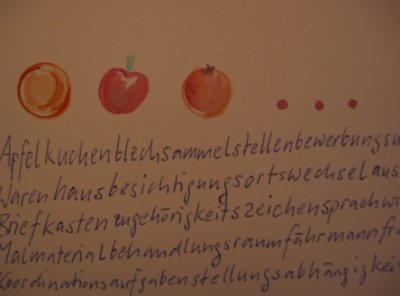 Apfelkuchenblechsammelstellenbewerbungsu
Warenhausbesichtigungsortswechselaus
Briefkastenzugehörigkeitszeichensprachwi
Malmaterialbehandlungsraumfährmannfra
Koordinationsaufgabenstellungsabhängigkei